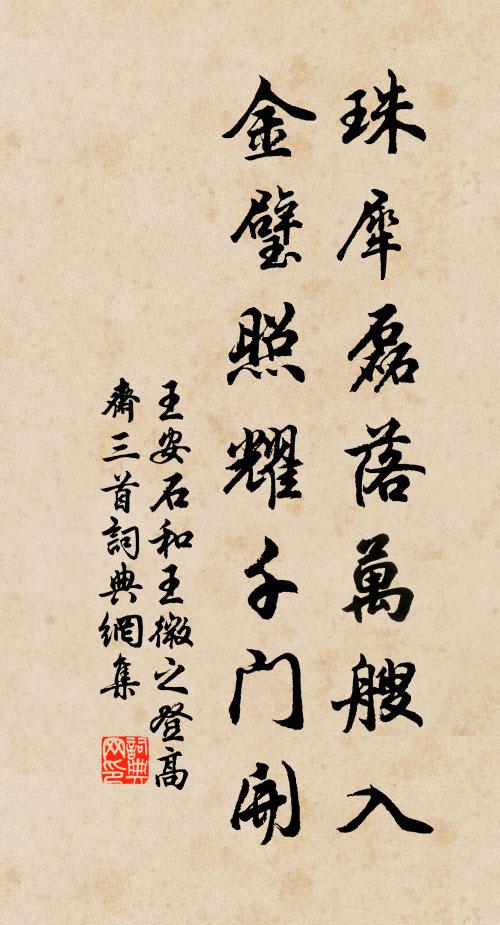 珠犀磊落萬艘入
金璧照耀千門開
王安石和王微之登高
齋三首詞典網集
詞典网印